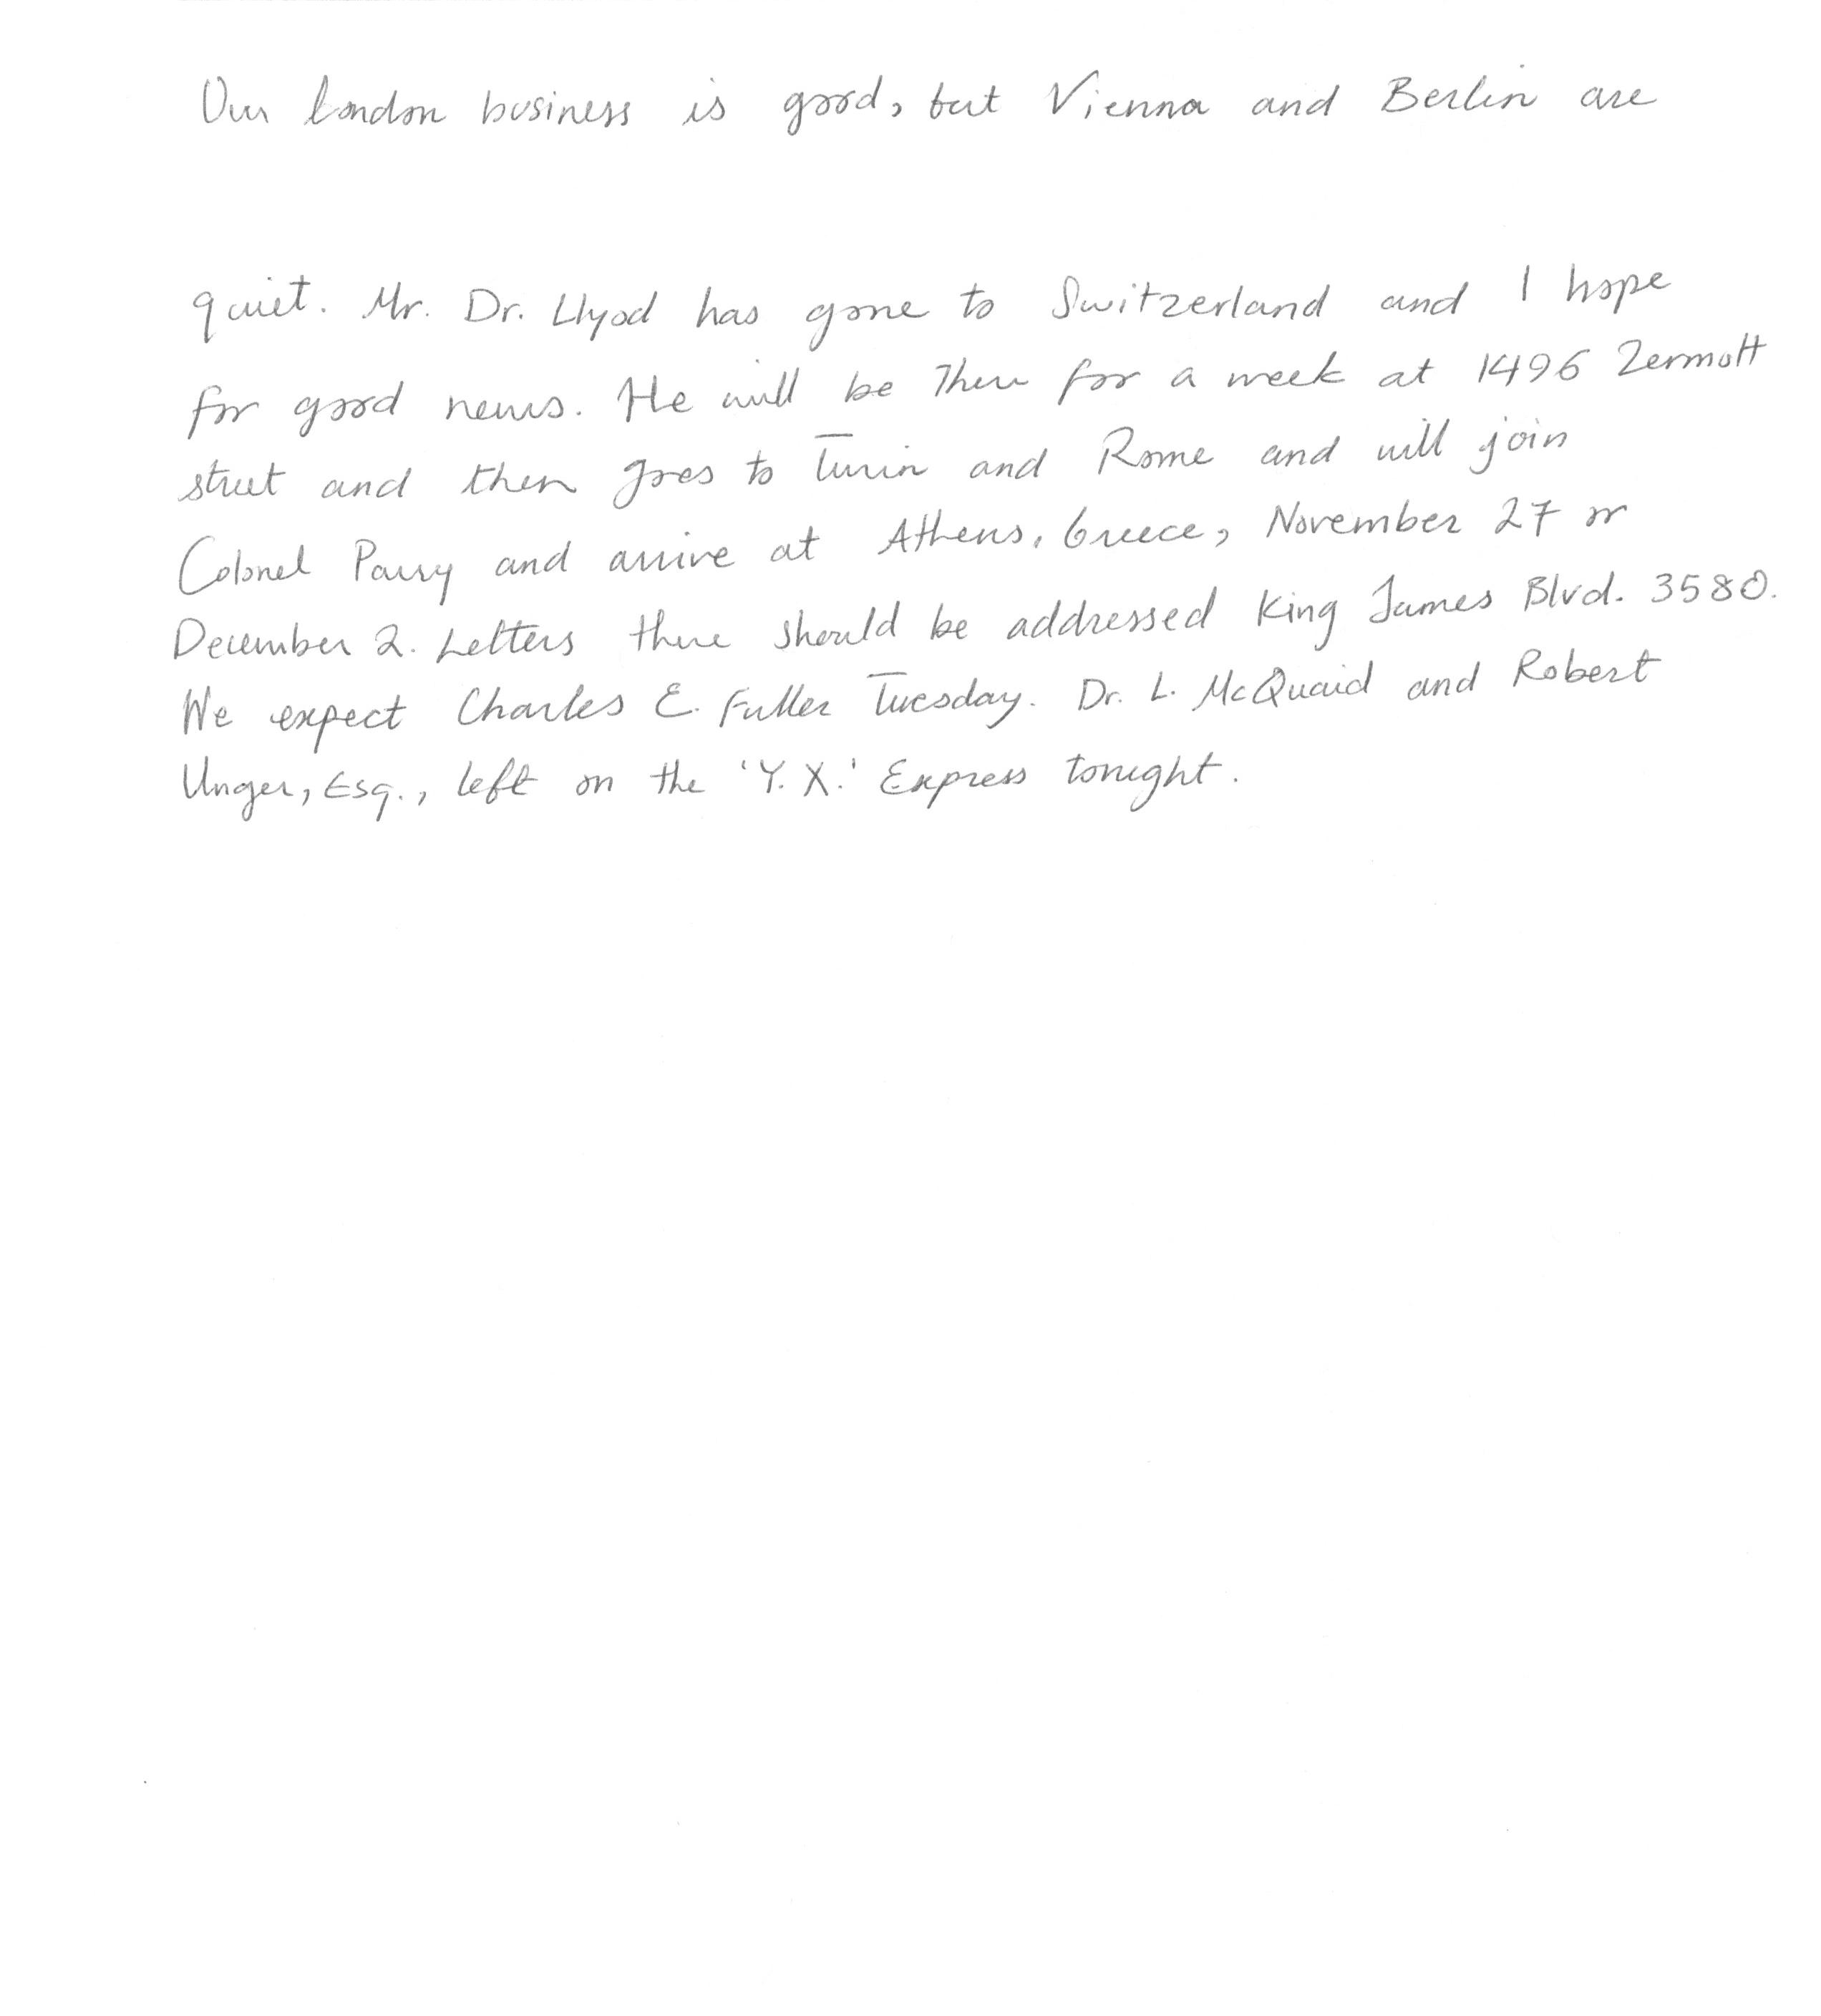 Our London business is good, but Vienna and Berlin are
quiet. Mr. Dr. Llyod has gone to Switzerland and I hope
for good news. He will be there for a week at 1496 Zermott
street and then goes to Turin and Rome and will join
Colonel Parry and arrive at Athens, Greece, November 27 or
December 2. Letters there should be addressed King James Blvd. 3580.
We expect Charles E. Fuller Tuesday. Dr. L. McQuaid and Robert
Unger, Esq., left on the 'Y. X.' Express tonight.